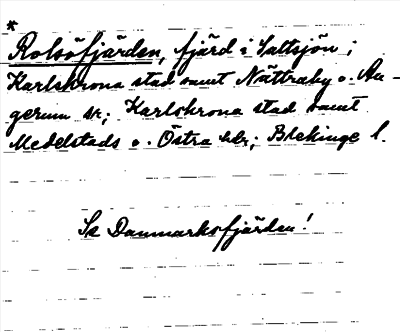 *
Rolsöfjärden, fjärd i Saltsjön i
Karlskrona stad samt Nättraby o. Au-
gerum sr; Karlskrona stad samt
Medelstads o. Östra hdr; Blekinge l.
Se Danmarksfjärden!